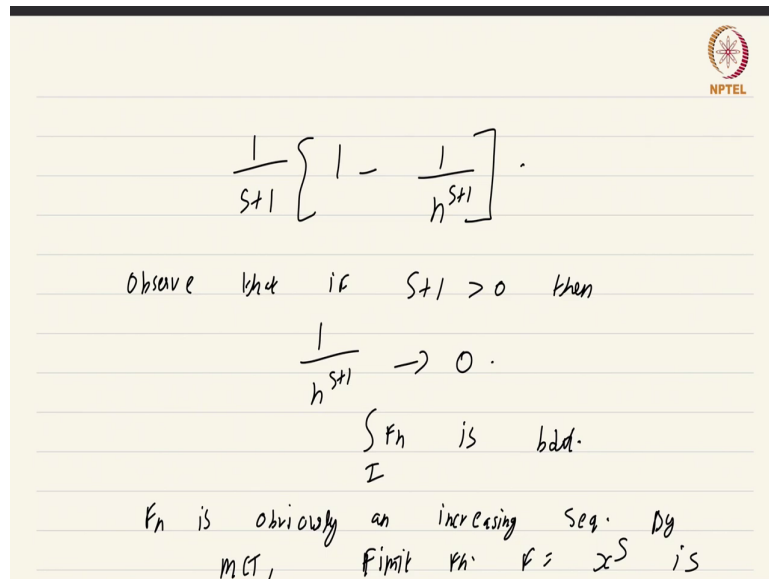 NPTEL
1/(S+1) [1 - 1/n^(S+1)].
Observe that if S+1 > 0 then
1/n^(S+1) → 0.
∫_I Fn is bdd.
Fn is obviously an increasing seq. By
MCT, Fimit Fn. F = x^S is